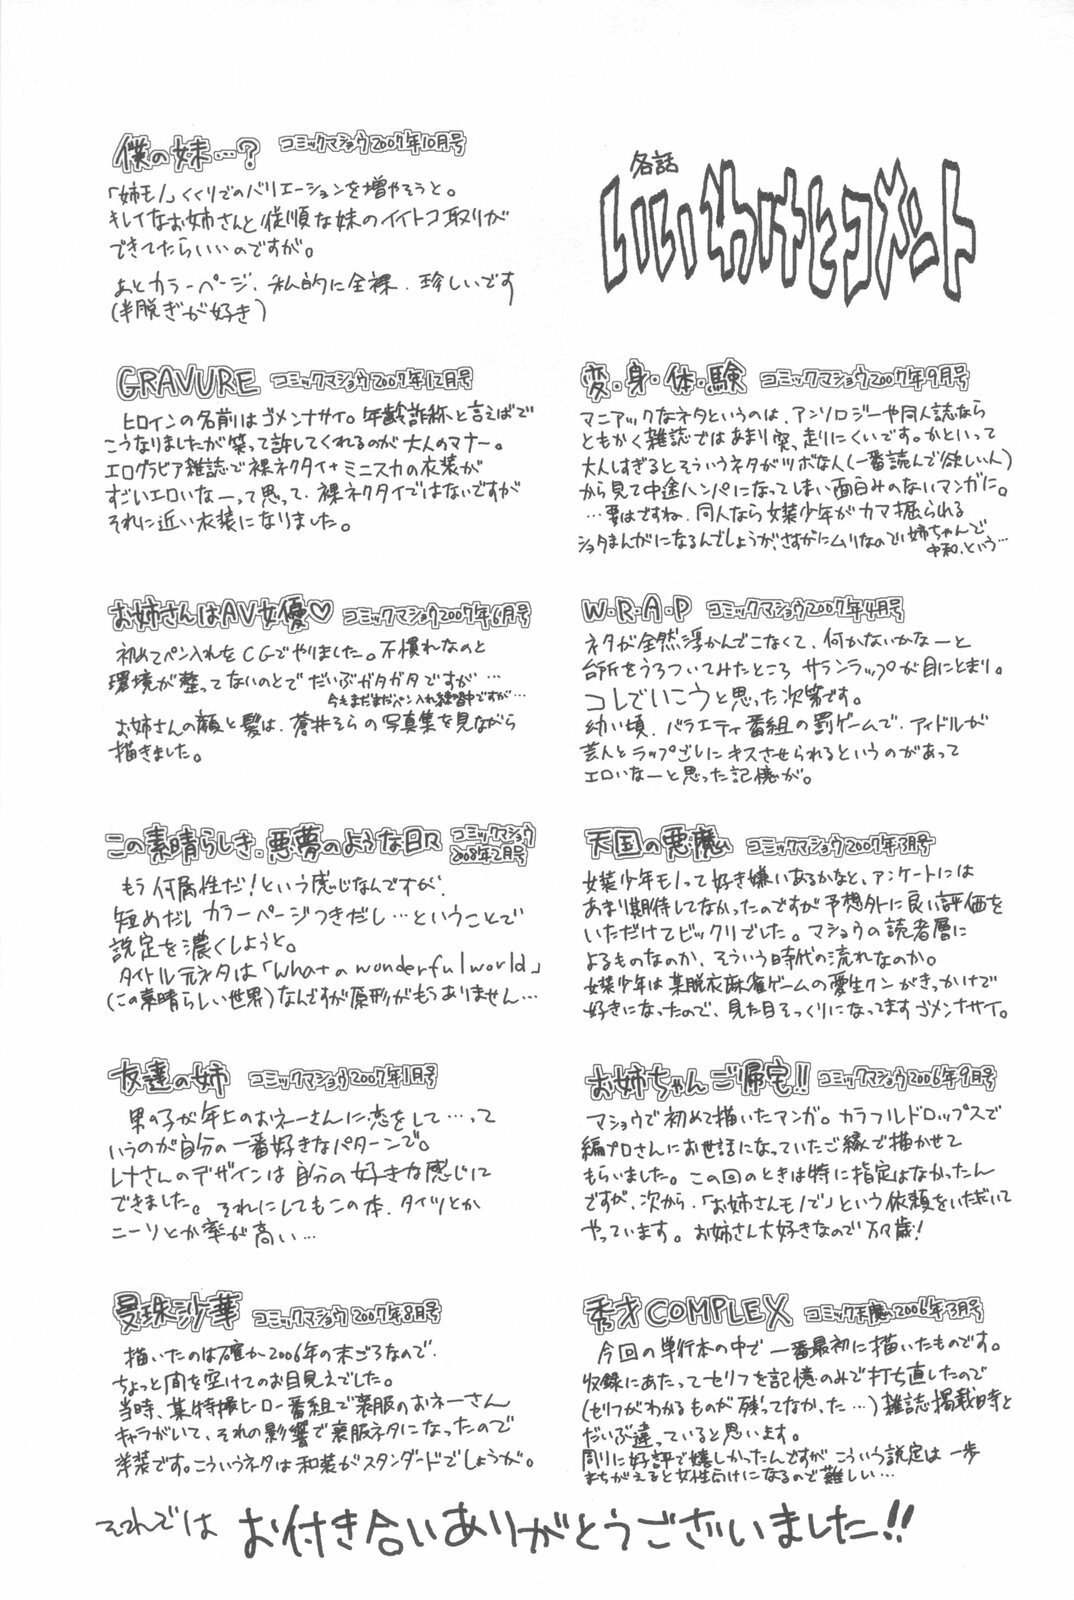 各話
いいわけとコメント
変・身・体・験 コミックマショウ2007年9月号
マニアックなネタというのは、アンソロジーや同人誌なら
ともかく雑誌ではあまり突っ走りにくいです。かといって
大人しすぎるとそういうネタがツボな人(一番読んで欲しい人)
から見て中途ハンパになってしまい面白みのないマンガに。
…要はですね、同人なら女装少年がカマ掘られる
ショタまんがになるんでしょうが、さすがにムリなので姉ちゃんで
中和、という…
W・R・A・P コミックマショウ2007年4月号
ネタが全然浮かんでこなくて、何かないかなーと
台所をうろついてみたところ サランラップが目にとまり。
コレでいこうと思った次第です。
幼い頃、バラエティ番組の罰ゲームで、アイドルが
芸人とラップごしにキスさせられるというのがあって
エロいなーと思った記憶が。
天国の悪魔 コミックマショウ2007年3月号
女装少年モノって好き嫌いあるかなと、アンケートには
あまり期待してなかったのですが予想外に良い評価を
いただけてビックリでした。マショウの読者層に
よるものなのか、そういう時代の流れなのか。
女装少年は某脱衣麻雀ゲームの愛生クンがきっかけで
好きになったので、見た目そっくりになってますゴメンナサイ。
お姉ちゃんご帰宅!! コミックマショウ2006年9月号
マショウで初めて描いたマンガ。カラフルドロップスで
編プロさんにお世話になっていたご縁で描かせて
もらいました。この回のときは特に指定はなかったん
ですが、次から、「お姉さんモノで」という依頼をいただいて
やっています。お姉さん大好きなので万歳!
秀才COMPLEX コミック天魔2006年3月号
今回の単行本の中で一番最初に描いたものです。
収録にあたってセリフを記憶のみで打ち直したので
(セリフがわかるものが残ってなかった…)雑誌掲載時と
だいぶ違っていると思います。
周りに好評で嬉しかったんですが、こういう設定は一歩
まちがえると女性向けになるので難しい…
僕の妹…? コミックマショウ2007年10月号
「姉モノ」くくりでのバリエーションを増やそうと。
キレイなお姉さんと従順な妹のイイトコ取りが
できてたらいいのですが。
あとカラーページ、私的に全裸、珍しいです
(半脱ぎが好き)
GRAVURE コミックマショウ2007年12月号
ヒロインの名前はゴメンナサイ。年齢詐称と言えばで
こうなりましたが笑って許してくれるのが大人のマナー。
エログラビア雑誌で裸ネクタイ+ミニスカの衣装が
すごいエロいなーって思って、裸ネクタイではないですが
それに近い衣装になりました。
お姉さんはAV女優♡ コミックマショウ2007年6月号
初めてペン入れをCGでやりました。不慣れなのと
環境が整ってないのとでだいぶガタガタですが…
今もまだまだペン入れ練習中ですが…
お姉さんの顔と髪は、蒼井そらの写真集を見ながら
描きました。
この素晴らしき、悪夢のような日々 コミックマショウ
2008年2月号
もう何属性だ!という感じなんですが、
短めだしカラーページつきだし…ということで
設定を濃くしようと。
タイトル元ネタは「What a wonderful world」
(この素晴らしい世界)なんですが原形がもうありません…
友達の姉 コミックマショウ2007年1月号
男の子が年上のおネーさんに恋をして…って
いうのが自分の一番好きなパターンで。
レナさんのデザインは自分の好きな感じに
できました。それにしてもこの本、タイツとか
ニーソとか率が高い…
曼珠沙華 コミックマショウ2007年8月号
描いたのは確か2006年の末ごろなので、
ちょっと間を空けてのお目見えでした。
当時、某特撮ヒーロー番組で喪服のおネーさん
キャラがいて、それの影響で喪服ネタになったので
洋装です。こういうネタは和装がスタンダードでしょうが。
それでは お付き合いありがとうございました!!